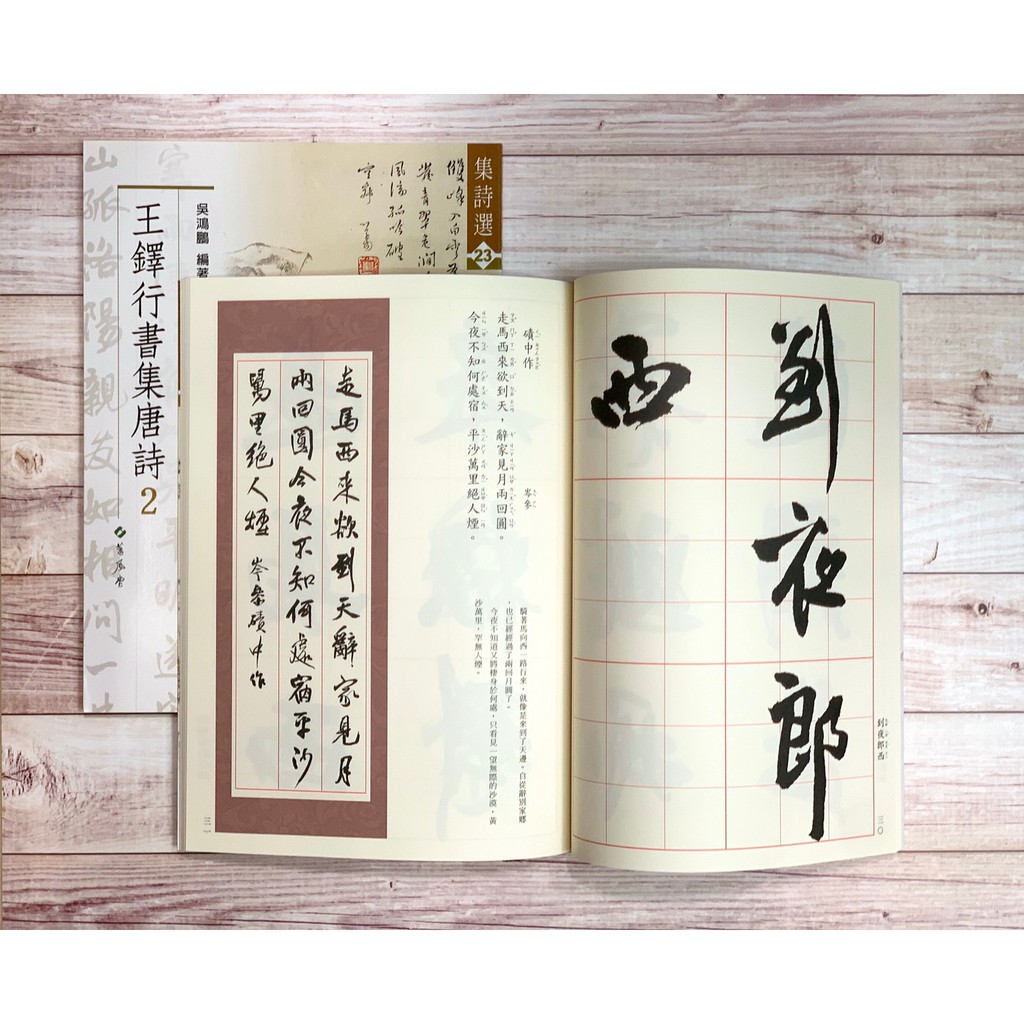 集詩選
23
雙峰
孤吟
吳鴻鵬 編著
王鐸行書集唐詩2
蕙風堂
山孤
洛陽親友如相問一片
到夜郎
西
到夜郎西
三〇
磧中作
岑參
走馬西來欲到天，辭家見月兩回圓。
今夜不知何處宿，平沙萬里絕人煙。
騎著馬向西一路行來，就像是來到了天邊。自從辭別家鄉
，也已經經過了兩回月圓了。
今夜不知道又將棲身於何處，只看見一望無際的沙漠，黃
沙萬里，罕無人煙。
走馬西來欲到天辭家見月
兩回圓今夜不知何處宿平沙
萬里絕人煙 岑參磧中作